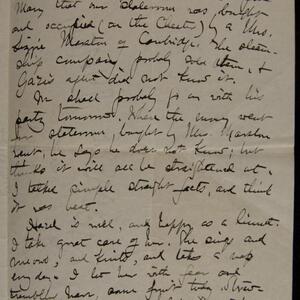 Mary that our staterooms was bought
and occupied (on the Cheats) by a Mrs.
Lizzie Marston of Cambridge. The steam-
ship company probly sold them, &
Gaze's agent did not know it.
We shall probly go on with his
party tomorrow. Where the money went
for staterooms, bought by Mrs. Marston
went, he says he does not know; but
thinks it will all be straightened out.
I talked simple straight facts, and think
it was best.
Hazel is well, and happy as a linnet.
I take great care of her. She sings and
and knits, and takes a nap
every day. I let her with fear and
trembling have some fruit